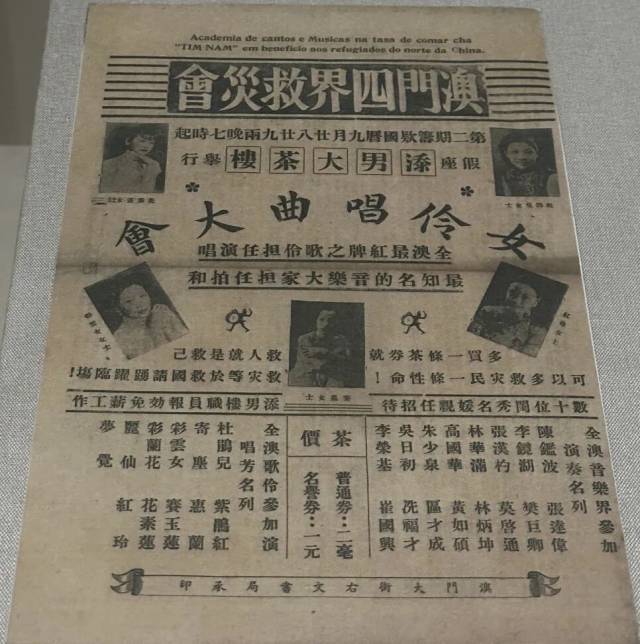 Academia de cantos e Musicas na tasa de comar cha
"TIM NAM" em beneficio aos refugiados do norte da China.
澳門四界救災會
第二期籌欵國曆九月廿八廿九兩晚七時起
假座添男大茶樓舉行
女伶唱曲大會
全澳最紅牌之歌伶担任演唱
最知名的音樂大家担任拍和
多買一條茶劵就
可以多救災民一條性命！
救人就是救己
救灾等於救國請踴躍臨塲！
數十位閨秀名媛親任招待
添男樓職員報効免薪工作
全澳音樂界參加
演奏名列
陳鑑波
李鏡湖
張漢杓
林華
高國華
朱少泉
吳日初
李榮基
張達偉
樊巨卿
莫啓通
林炳坤
黃如碩
區才成
冼福才
崔國興
茶價
普通劵：二毫
名譽劵：一元
全澳歌伶參加演
唱芳名列
杜鵑兒
寄塵
彩雲女
彩蘭花
麗仙
夢覺
紫鵑紅
惠蘭
賽玉蓮
花素蓮
紅玲
澳門大街右文書局承印